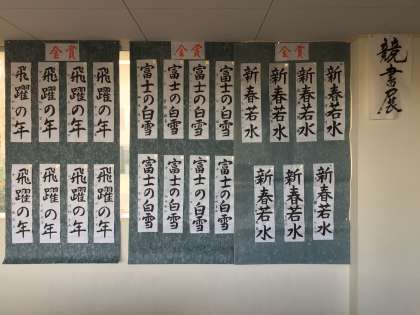 競書展
金賞
新春若水
新春若水
新春若水
新春若水
新春若水
新春若水
新春若水
金賞
富士の白雪
富士の白雪
富士の白雪
富士の白雪
富士の白雪
富士の白雪
富士の白雪
富士の白雪
金賞
飛躍の年
飛躍の年
飛躍の年
飛躍の年
飛躍の年
飛躍の年
飛躍の年
飛躍の年